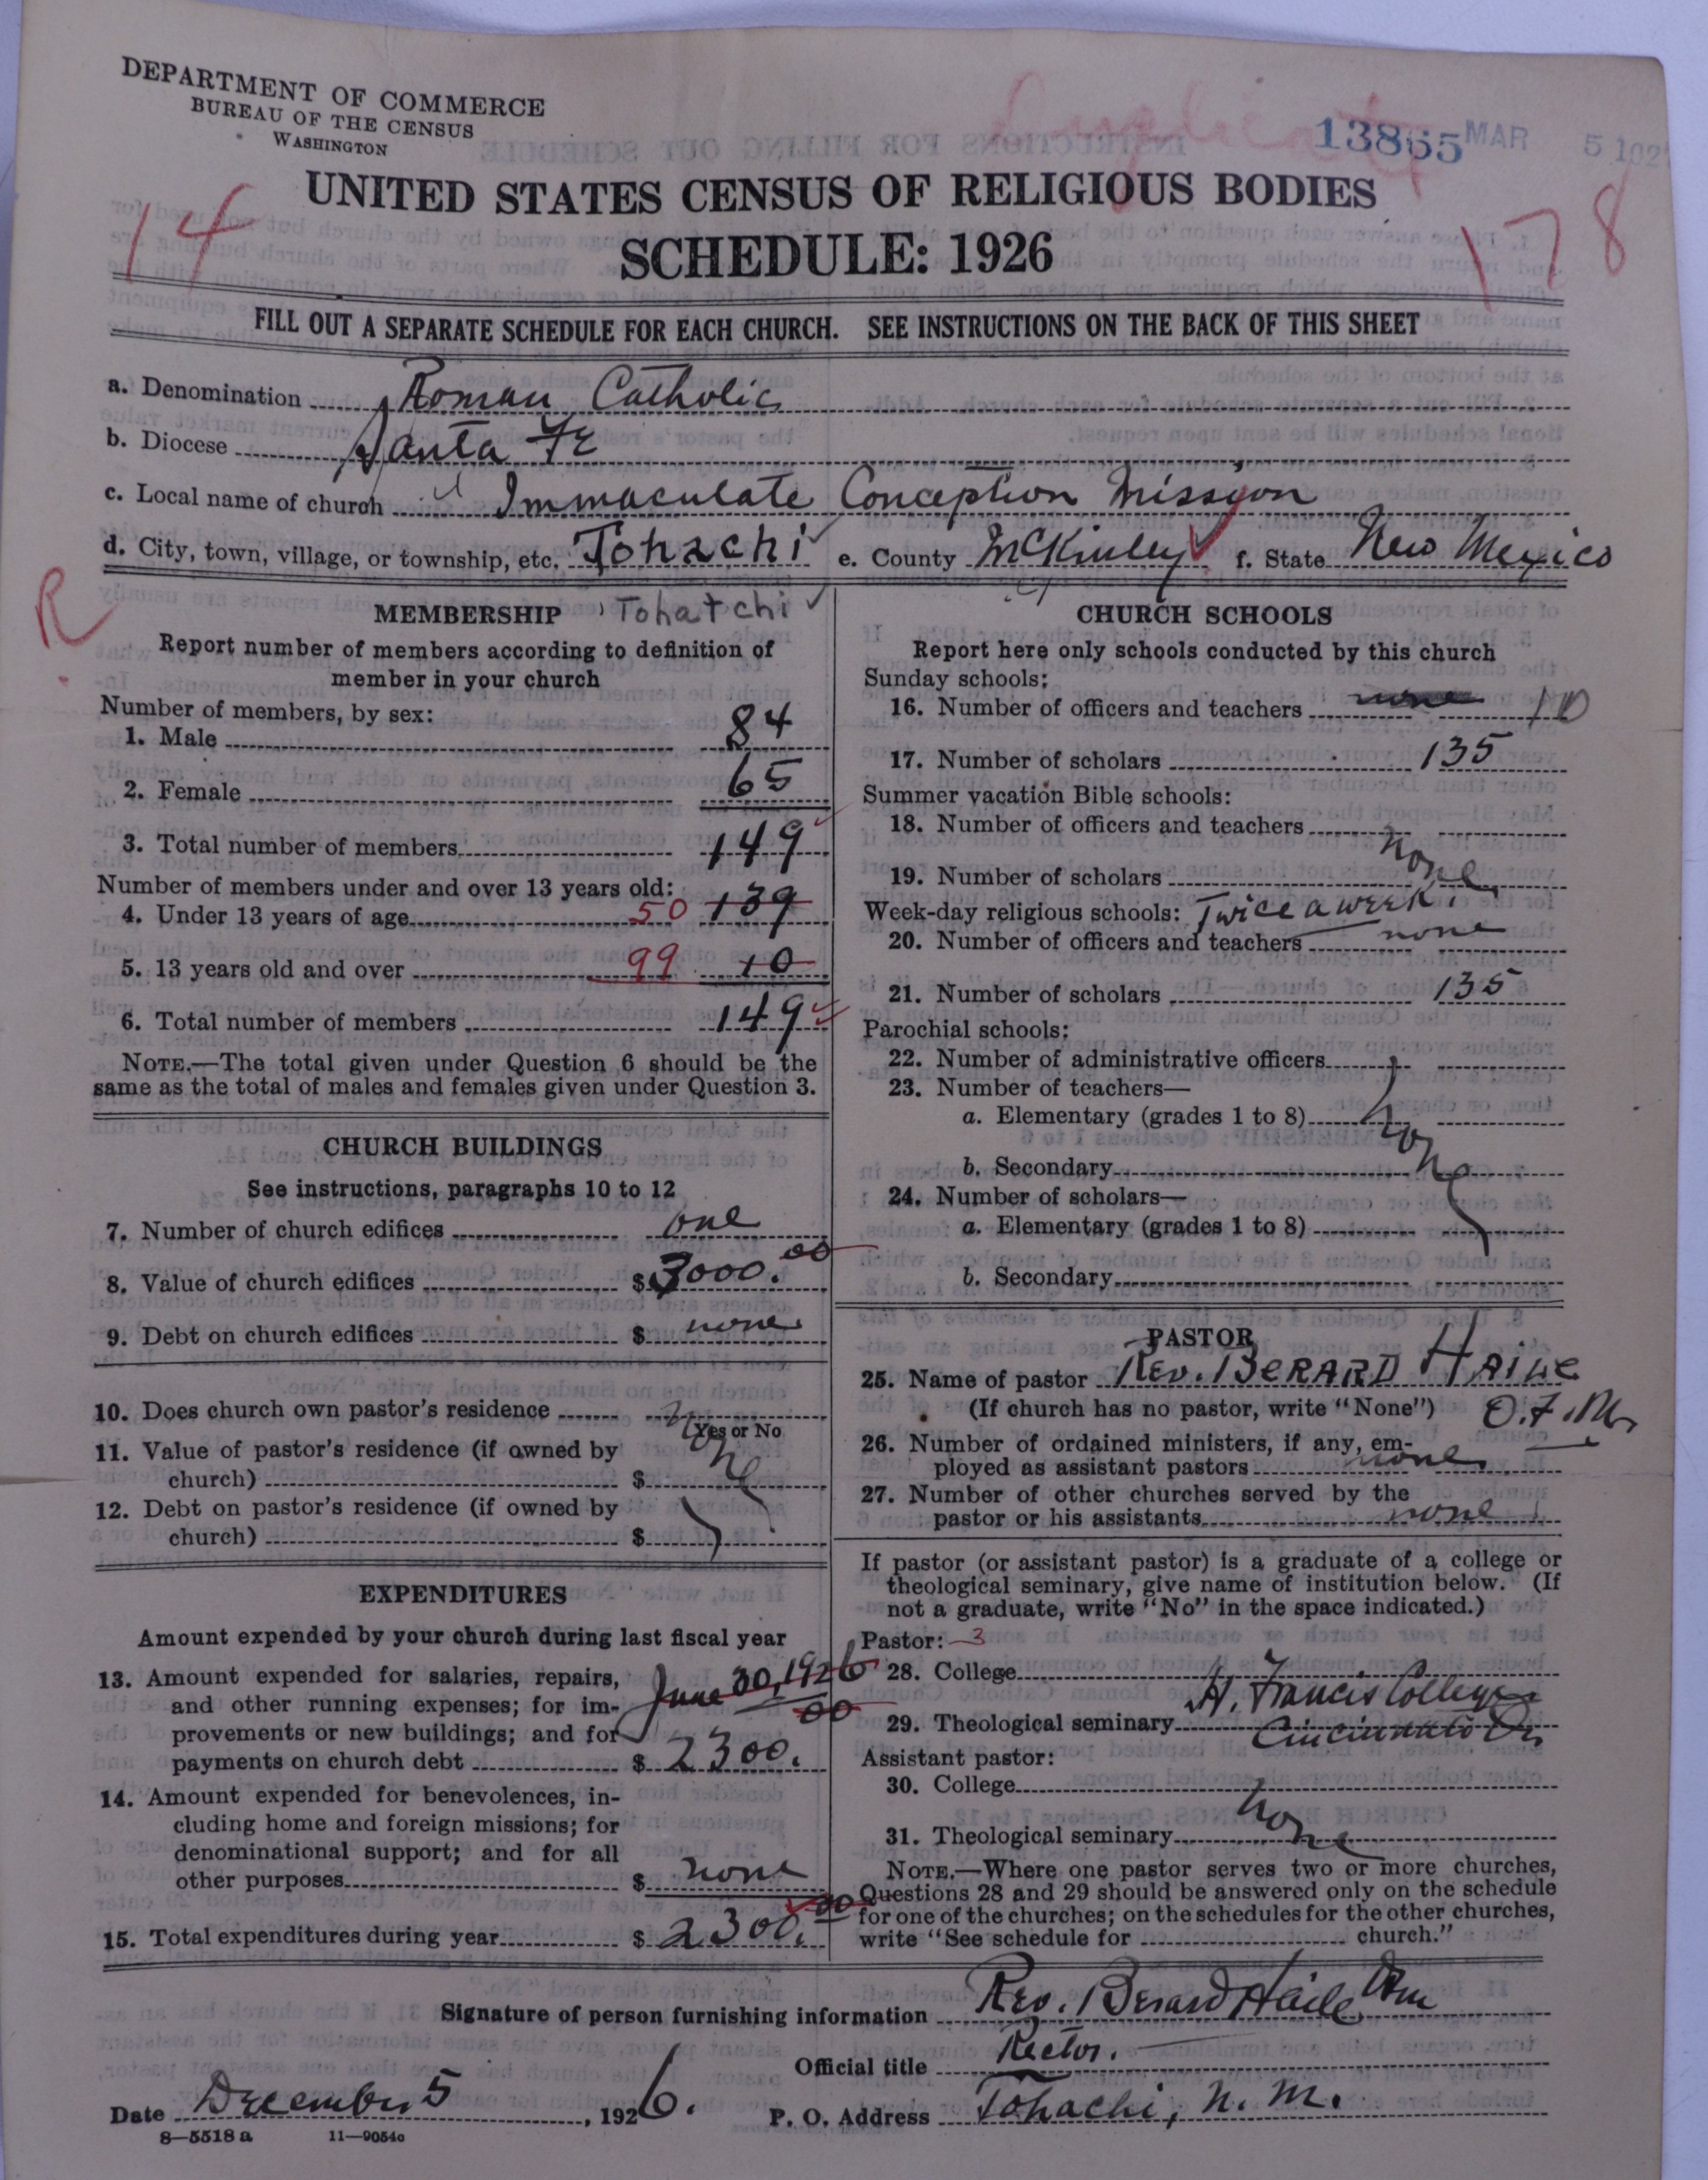 DEPARTMENT OF COMMERCE
BUREAU OF THE CENSUS
WASHINGTON
13865 MAR 5
UNITED STATES CENSUS OF RELIGIOUS BODIES
14 SCHEDULE: 1926 178
FILL OUT A SEPARATE SCHEDULE FOR EACH CHURCH. SEE INSTRUCTIONS ON THE BACK OF THIS SHEET
a. Denomination Roman Catholic
b. Diocese Santa Fe
c. Local name of church Immaculate Conception Mission
d. City, town, village, or township, etc. Tohachi e. County McKinley f. State New Mexico
R
MEMBERSHIP Tohatchi
Report number of members according to definition of
member in your church
Number of members, by sex:
1. Male 84
2. Female 65
3. Total number of members 149
Number of members under and over 13 years old:
4. Under 13 years of age 50 139
5. 13 years old and over 99 10
6. Total number of members 149
NOTE.—The total given under Question 6 should be the
same as the total of males and females given under Question 3.
CHURCH BUILDINGS
See instructions, paragraphs 10 to 12
7. Number of church edifices one
8. Value of church edifices $3000.00
9. Debt on church edifices $ none
10. Does church own pastor's residence none
Yes or No
11. Value of pastor's residence (if owned by
church) $
12. Debt on pastor's residence (if owned by
church) $
EXPENDITURES
Amount expended by your church during last fiscal year
13. Amount expended for salaries, repairs,
and other running expenses; for im-
provements or new buildings; and for
payments on church debt June 30, 1926 $ 2300.00
14. Amount expended for benevolences, in-
cluding home and foreign missions; for
denominational support; and for all
other purposes $ none
15. Total expenditures during year $ 2300.00
CHURCH SCHOOLS
Report here only schools conducted by this church
Sunday schools:
16. Number of officers and teachers none 10
17. Number of scholars 135
Summer vacation Bible schools:
18. Number of officers and teachers
none
19. Number of scholars
Week-day religious schools: Twice a week.
20. Number of officers and teachers none
21. Number of scholars 135
Parochial schools:
22. Number of administrative officers
23. Number of teachers—
a. Elementary (grades 1 to 8)
none
b. Secondary
24. Number of scholars—
a. Elementary (grades 1 to 8)
b. Secondary
PASTOR
25. Name of pastor Rev. BERARD HAILE
(If church has no pastor, write "None") O.F.M.
26. Number of ordained ministers, if any, em-
ployed as assistant pastors none
27. Number of other churches served by the
pastor or his assistants none
If pastor (or assistant pastor) is a graduate of a college or
theological seminary, give name of institution below. (If
not a graduate, write "No" in the space indicated.)
Pastor: 3
28. College
St. Francis College
29. Theological seminary Cincinnati O.
Assistant pastor:
30. College
none
31. Theological seminary
NOTE.—Where one pastor serves two or more churches,
Questions 28 and 29 should be answered only on the schedule
for one of the churches; on the schedules for the other churches,
write "See schedule for church."
Signature of person furnishing information Rev. Berard Haile Ofm
Official title Rector.
Date December 5, 1926. P. O. Address Tohachi, N. M.
8—5518 a 11—9054c